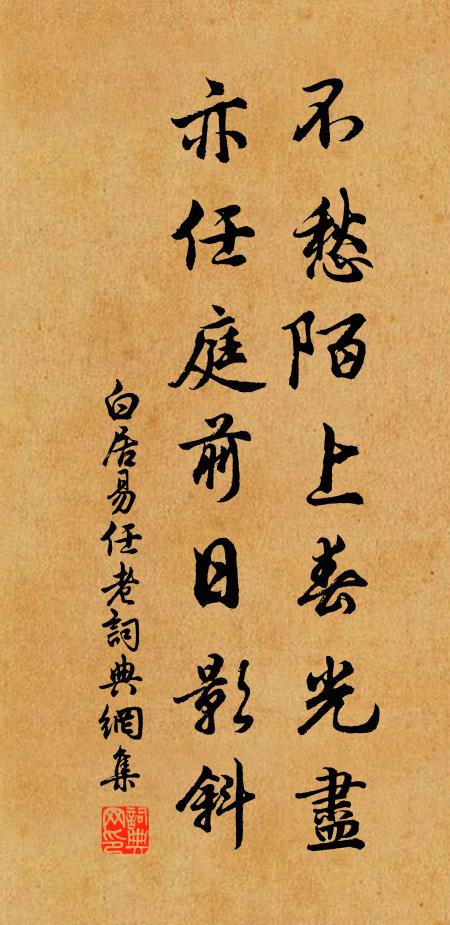 不愁陌上春光盡
亦任庭前日影斜
白居易任老詞典網集
詞典网印